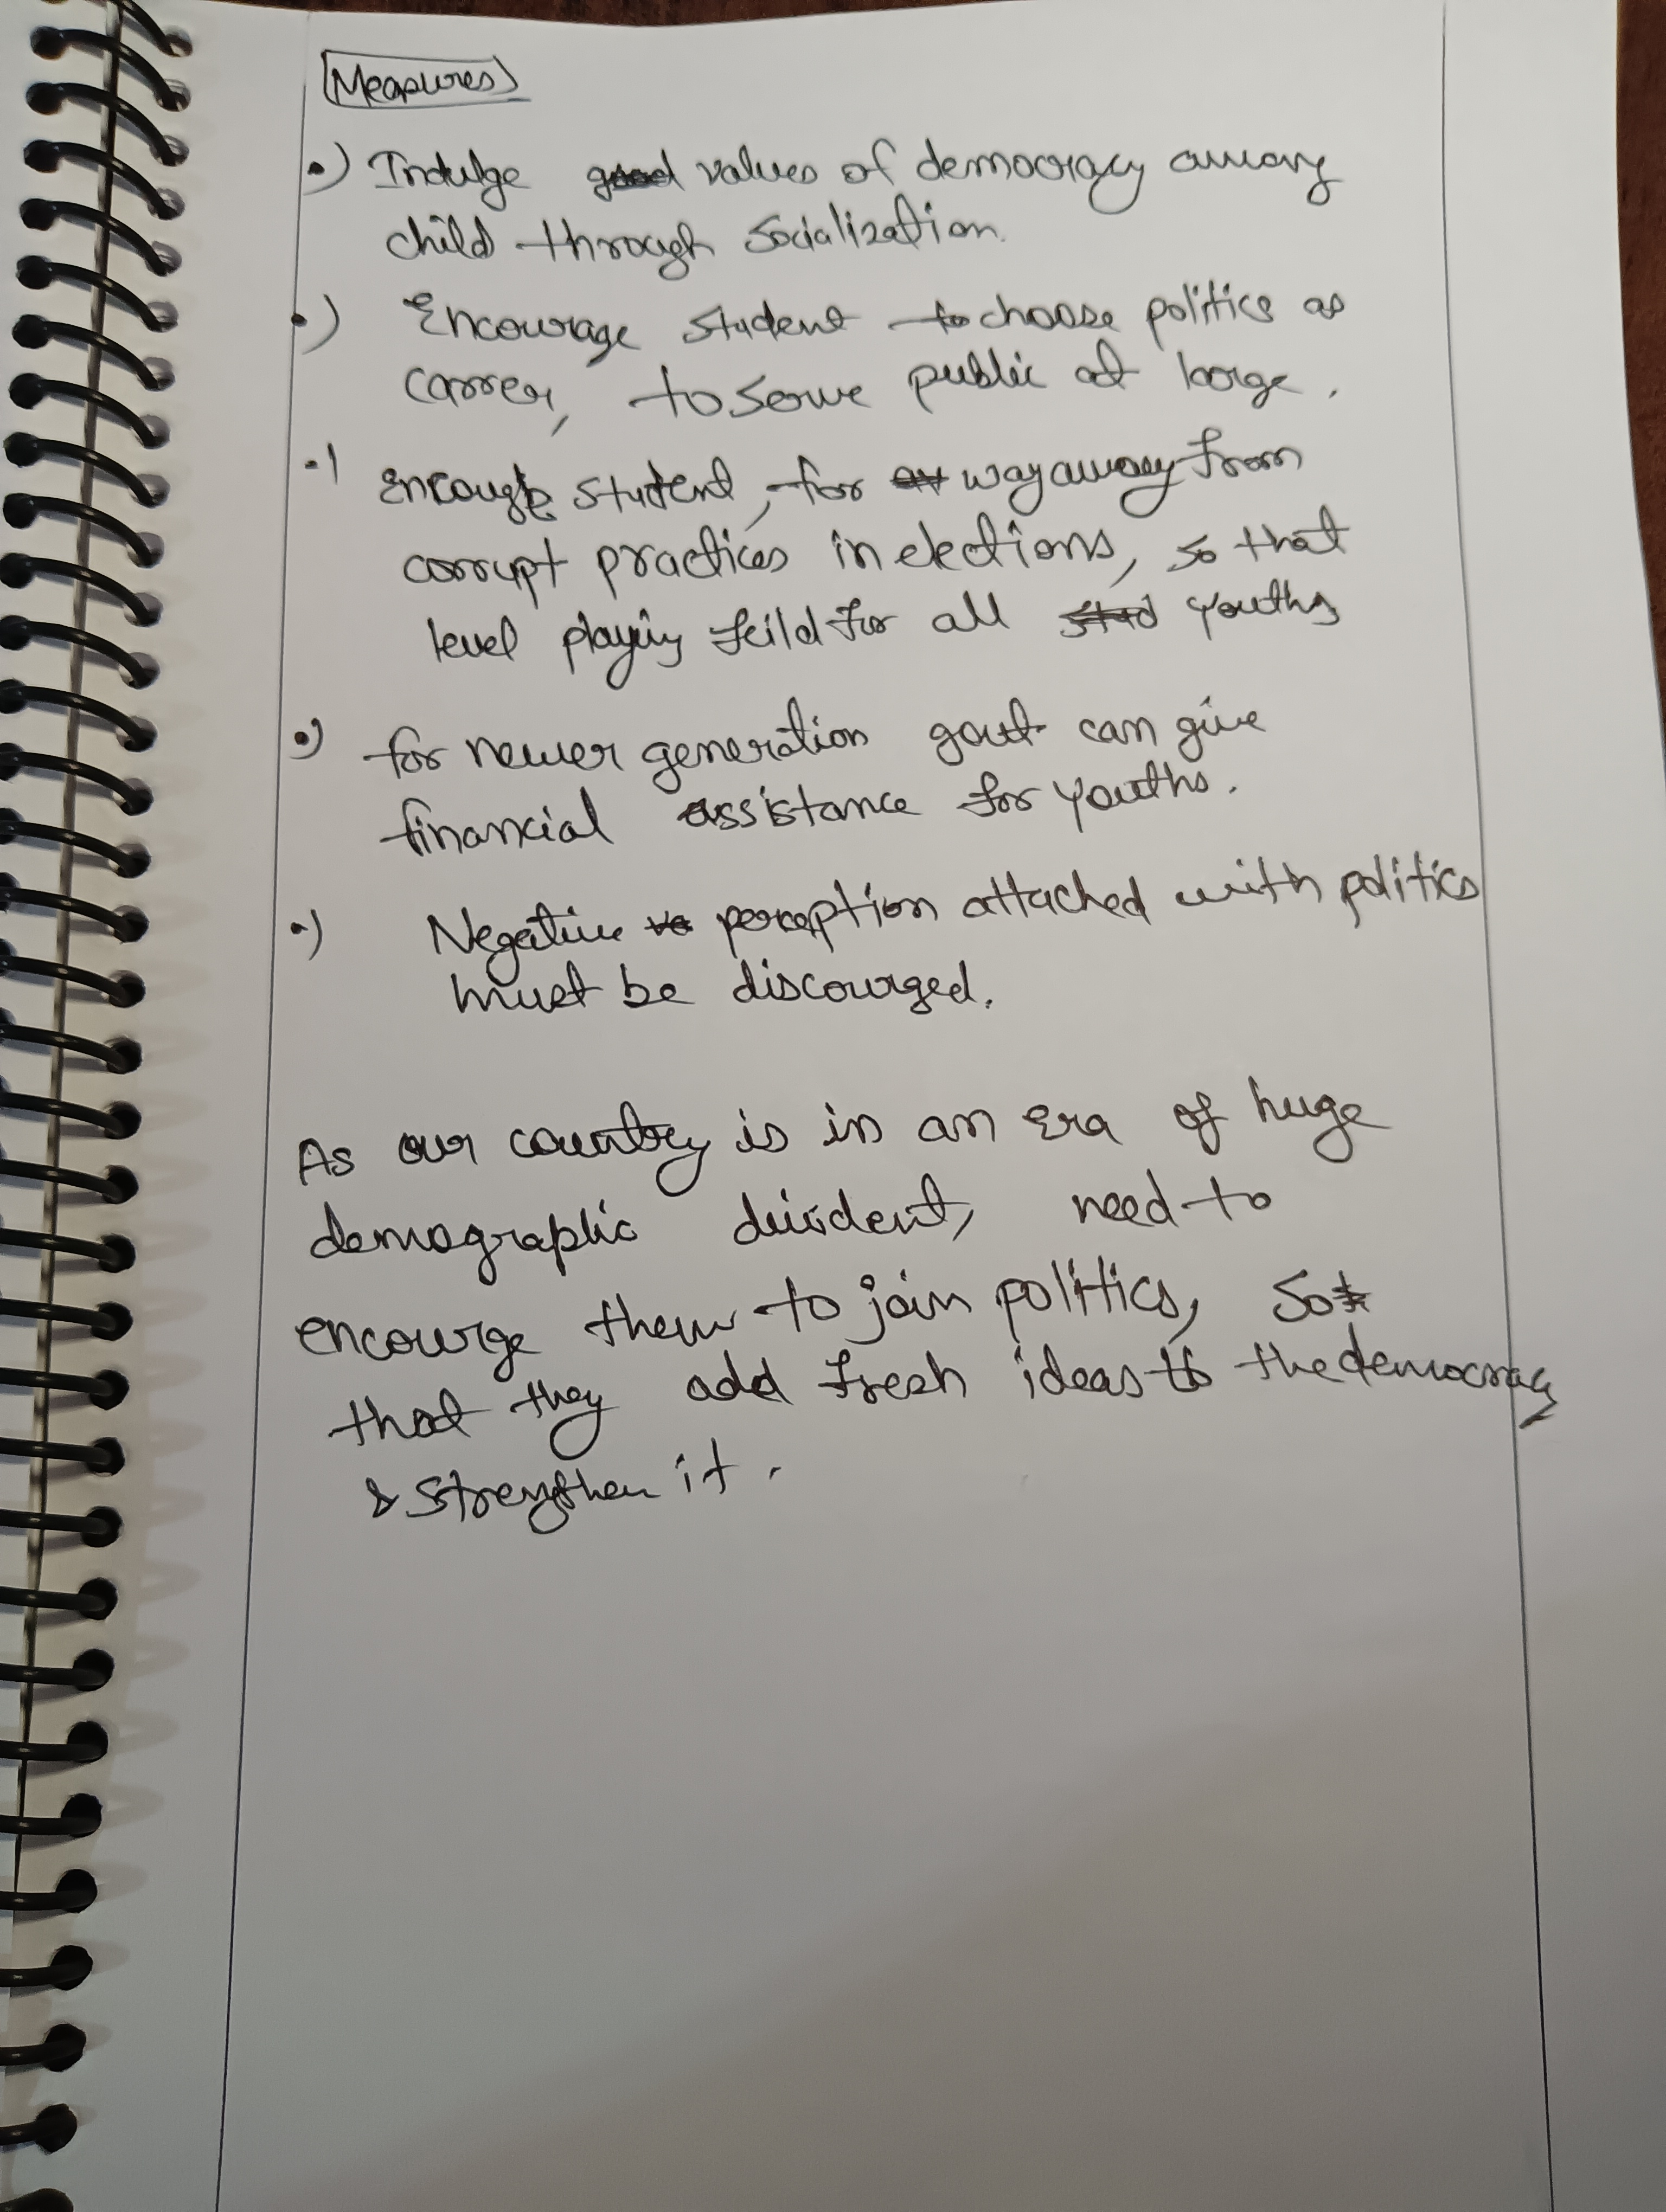 Measures
•) Indulge values of democracy among
child through socialization.
•) Encourage student to choose politics as
carrer, to serve public at large.
•) encouge student, for way away from
corrupt practices in elections, so that
level playing feild for all youths
•) for newer generation govt can give
financial assistance for youths.
•) Negative perception attached with politics
must be discourged.
As our country is in an era of huge
demographic divident, need to
encourge them to join politics, so
that they add fresh ideas to the democracy
& strengthen it.